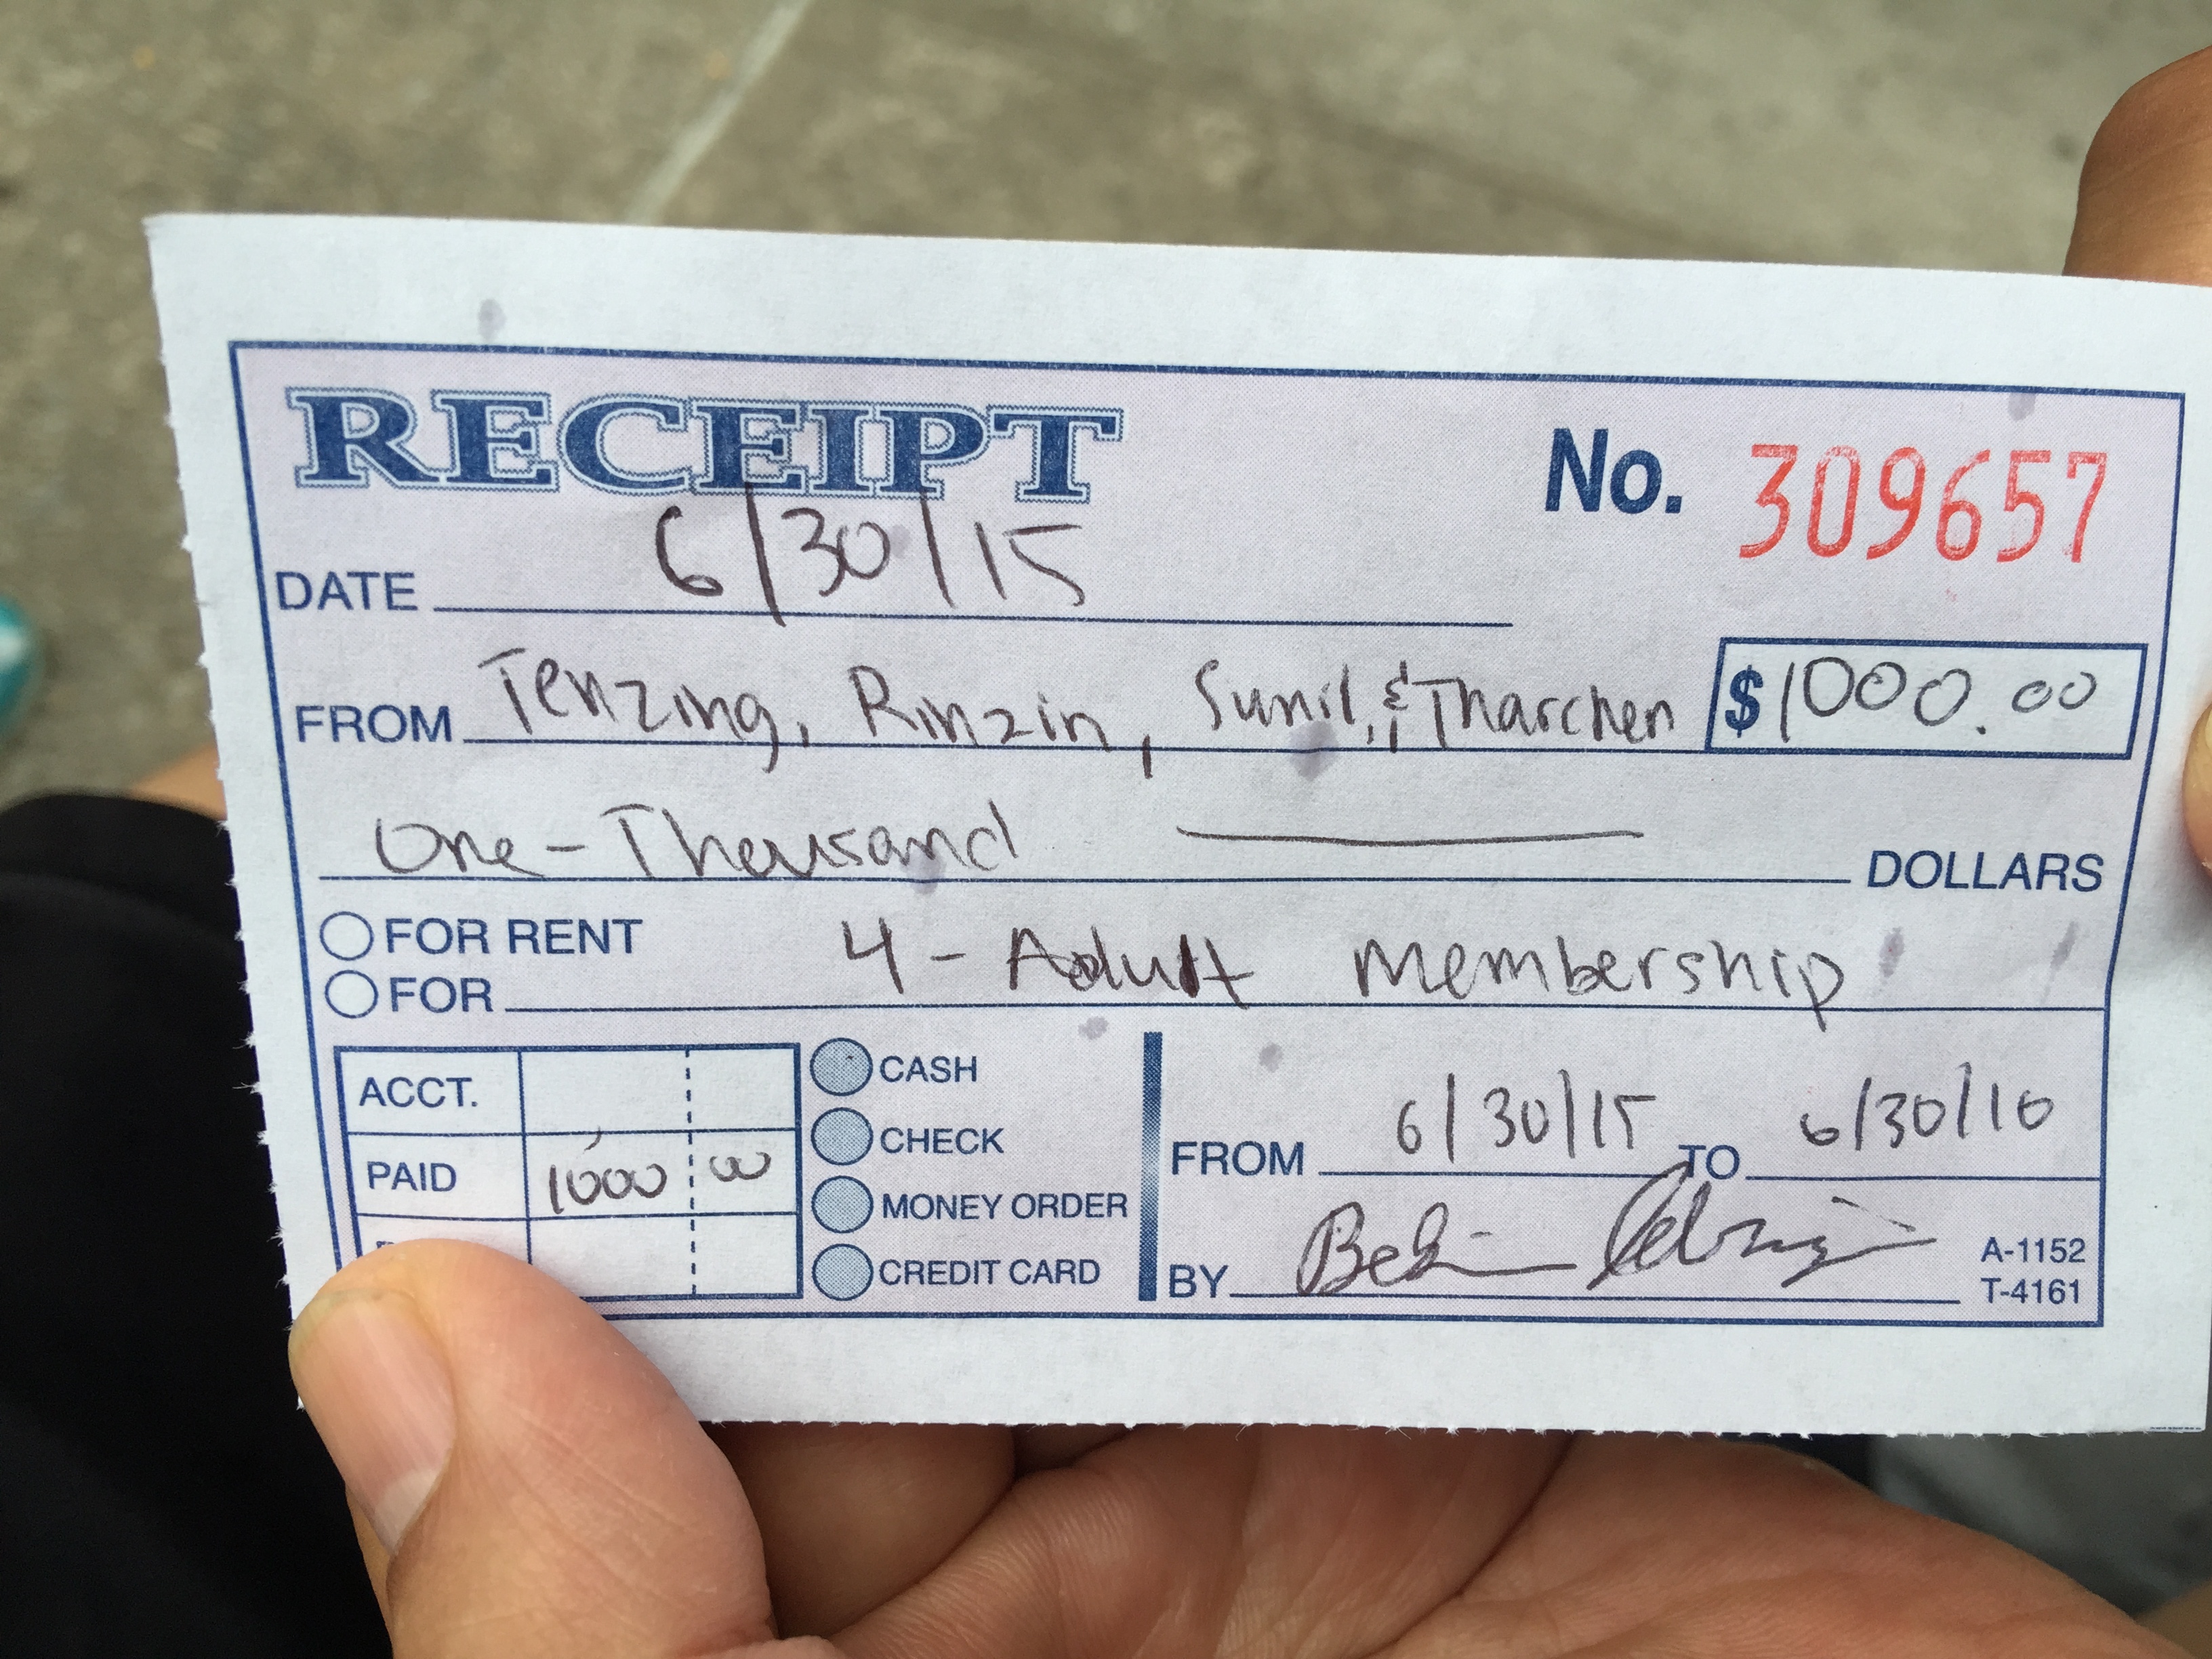 RECEIPT No. 309657
DATE 6/30/15
FROM Tenzing, Rinzin, Sunil, & Tharchen $1000.00
One-Thousand DOLLARS
FOR RENT
FOR 4-Adult Membership
ACCT.
PAID 1000 00
CASH
CHECK
MONEY ORDER
CREDIT CARD
FROM 6/30/15 TO 6/30/16
BY
A-1152
T-4161